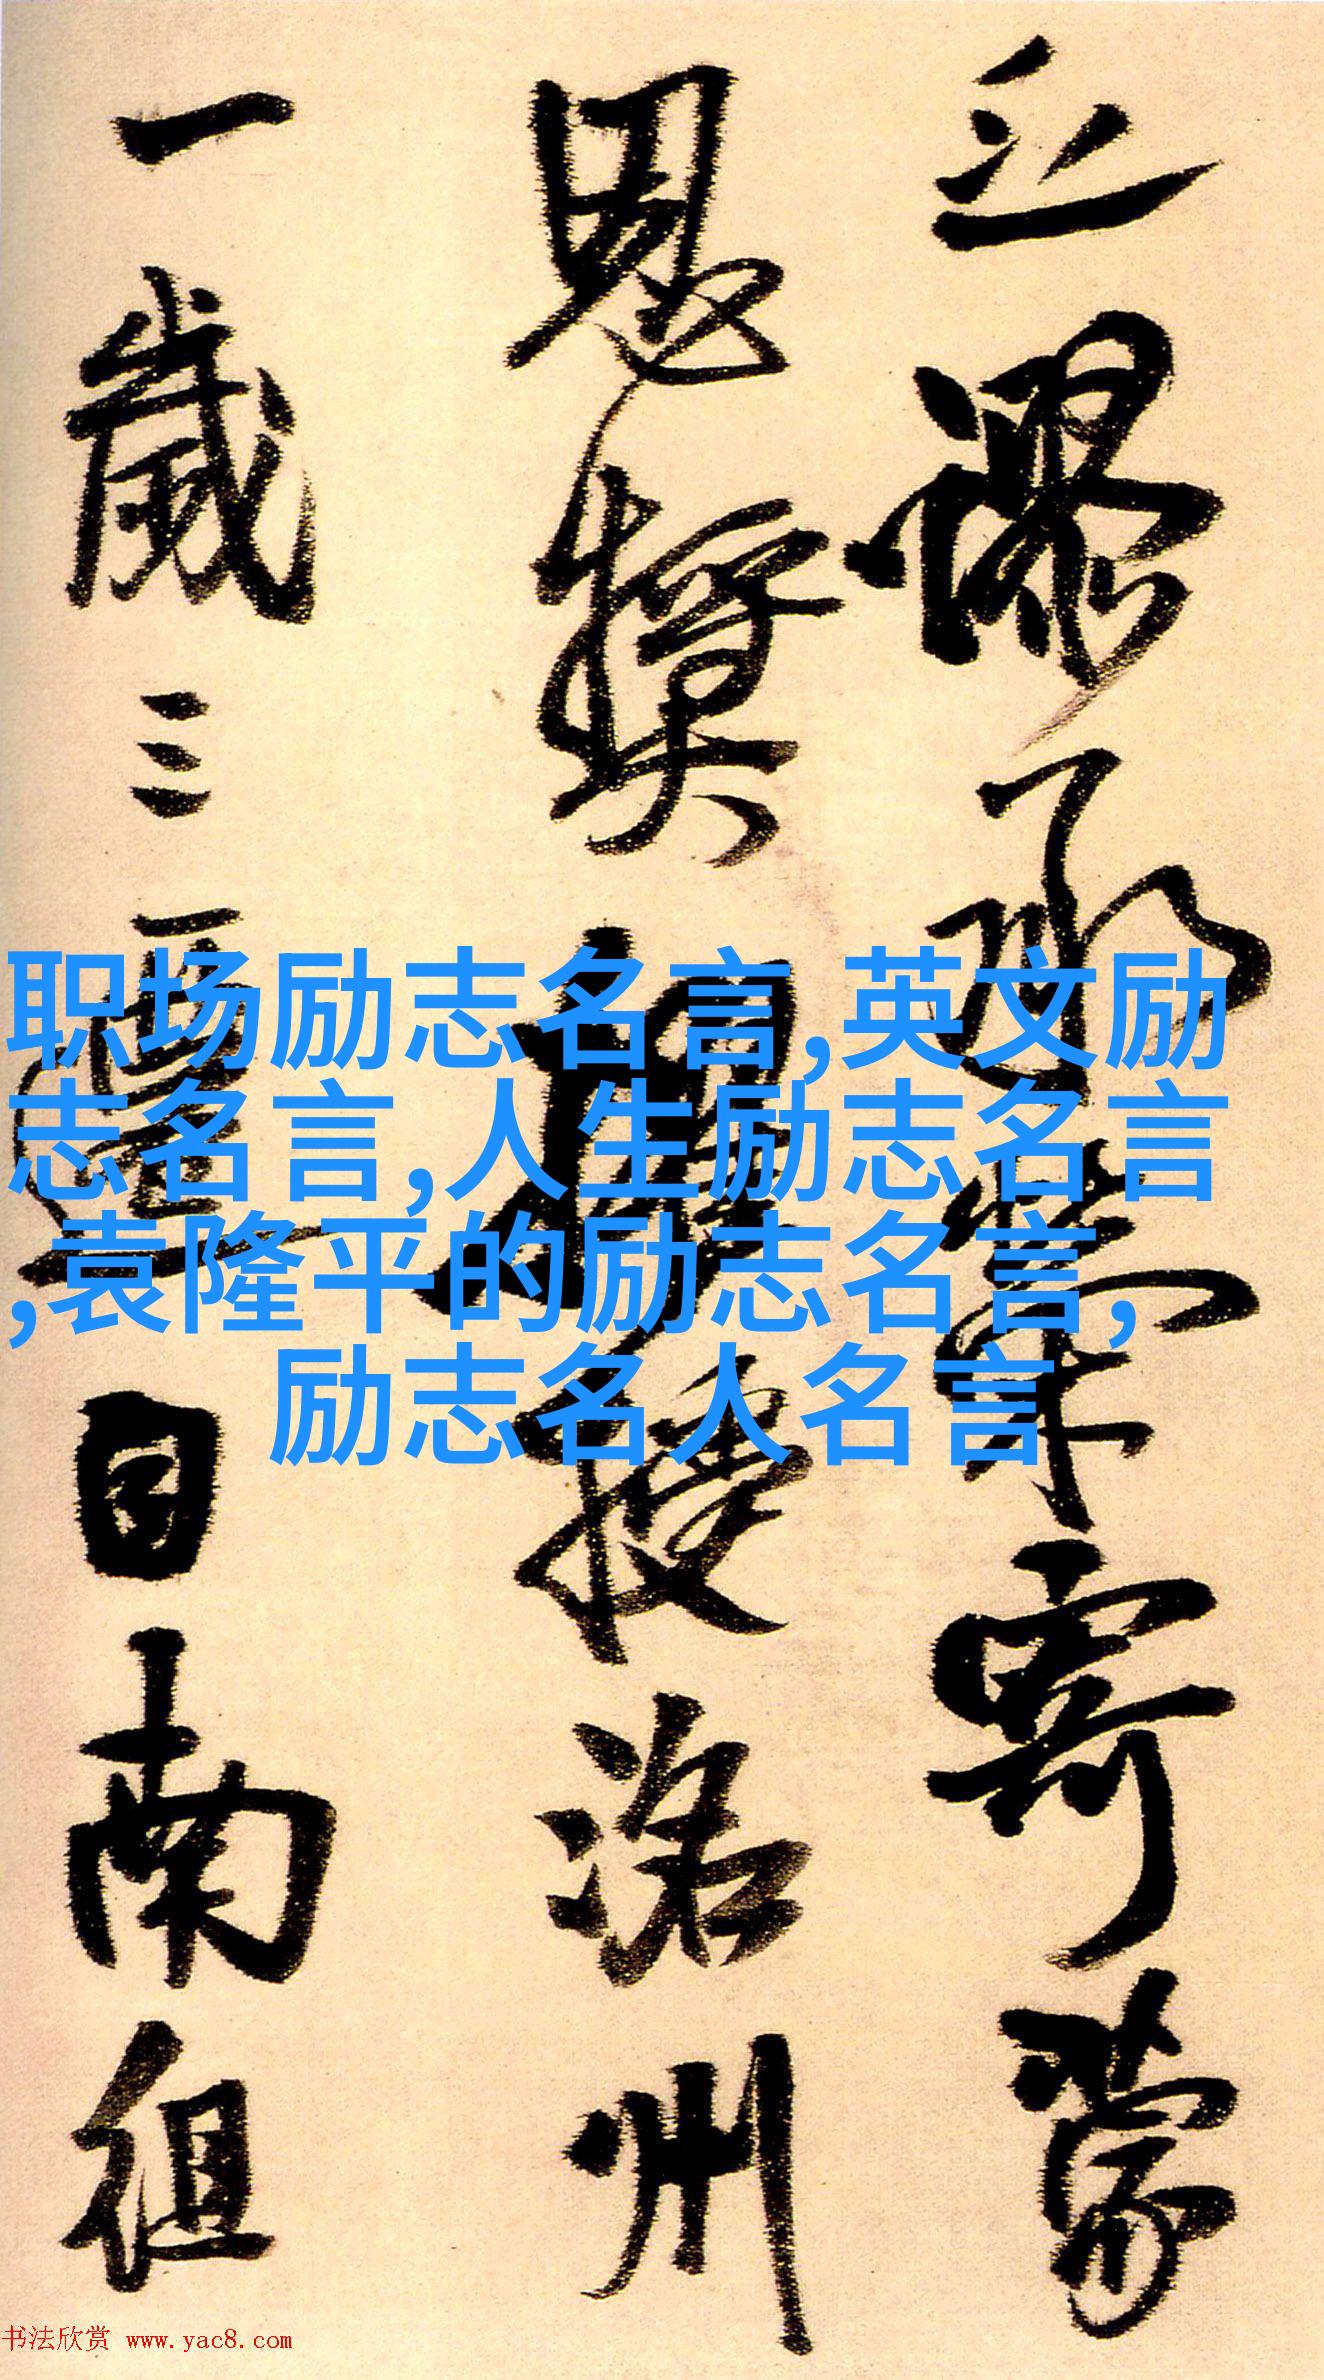 謬承榮寄蒙
恩獎授洛州
一歲三遷自南徂
职场励志名言,英文励
志名言,人生励志名言
,袁隆平的励志名言,
励志名人名言
书法欣赏 www.yac8.com